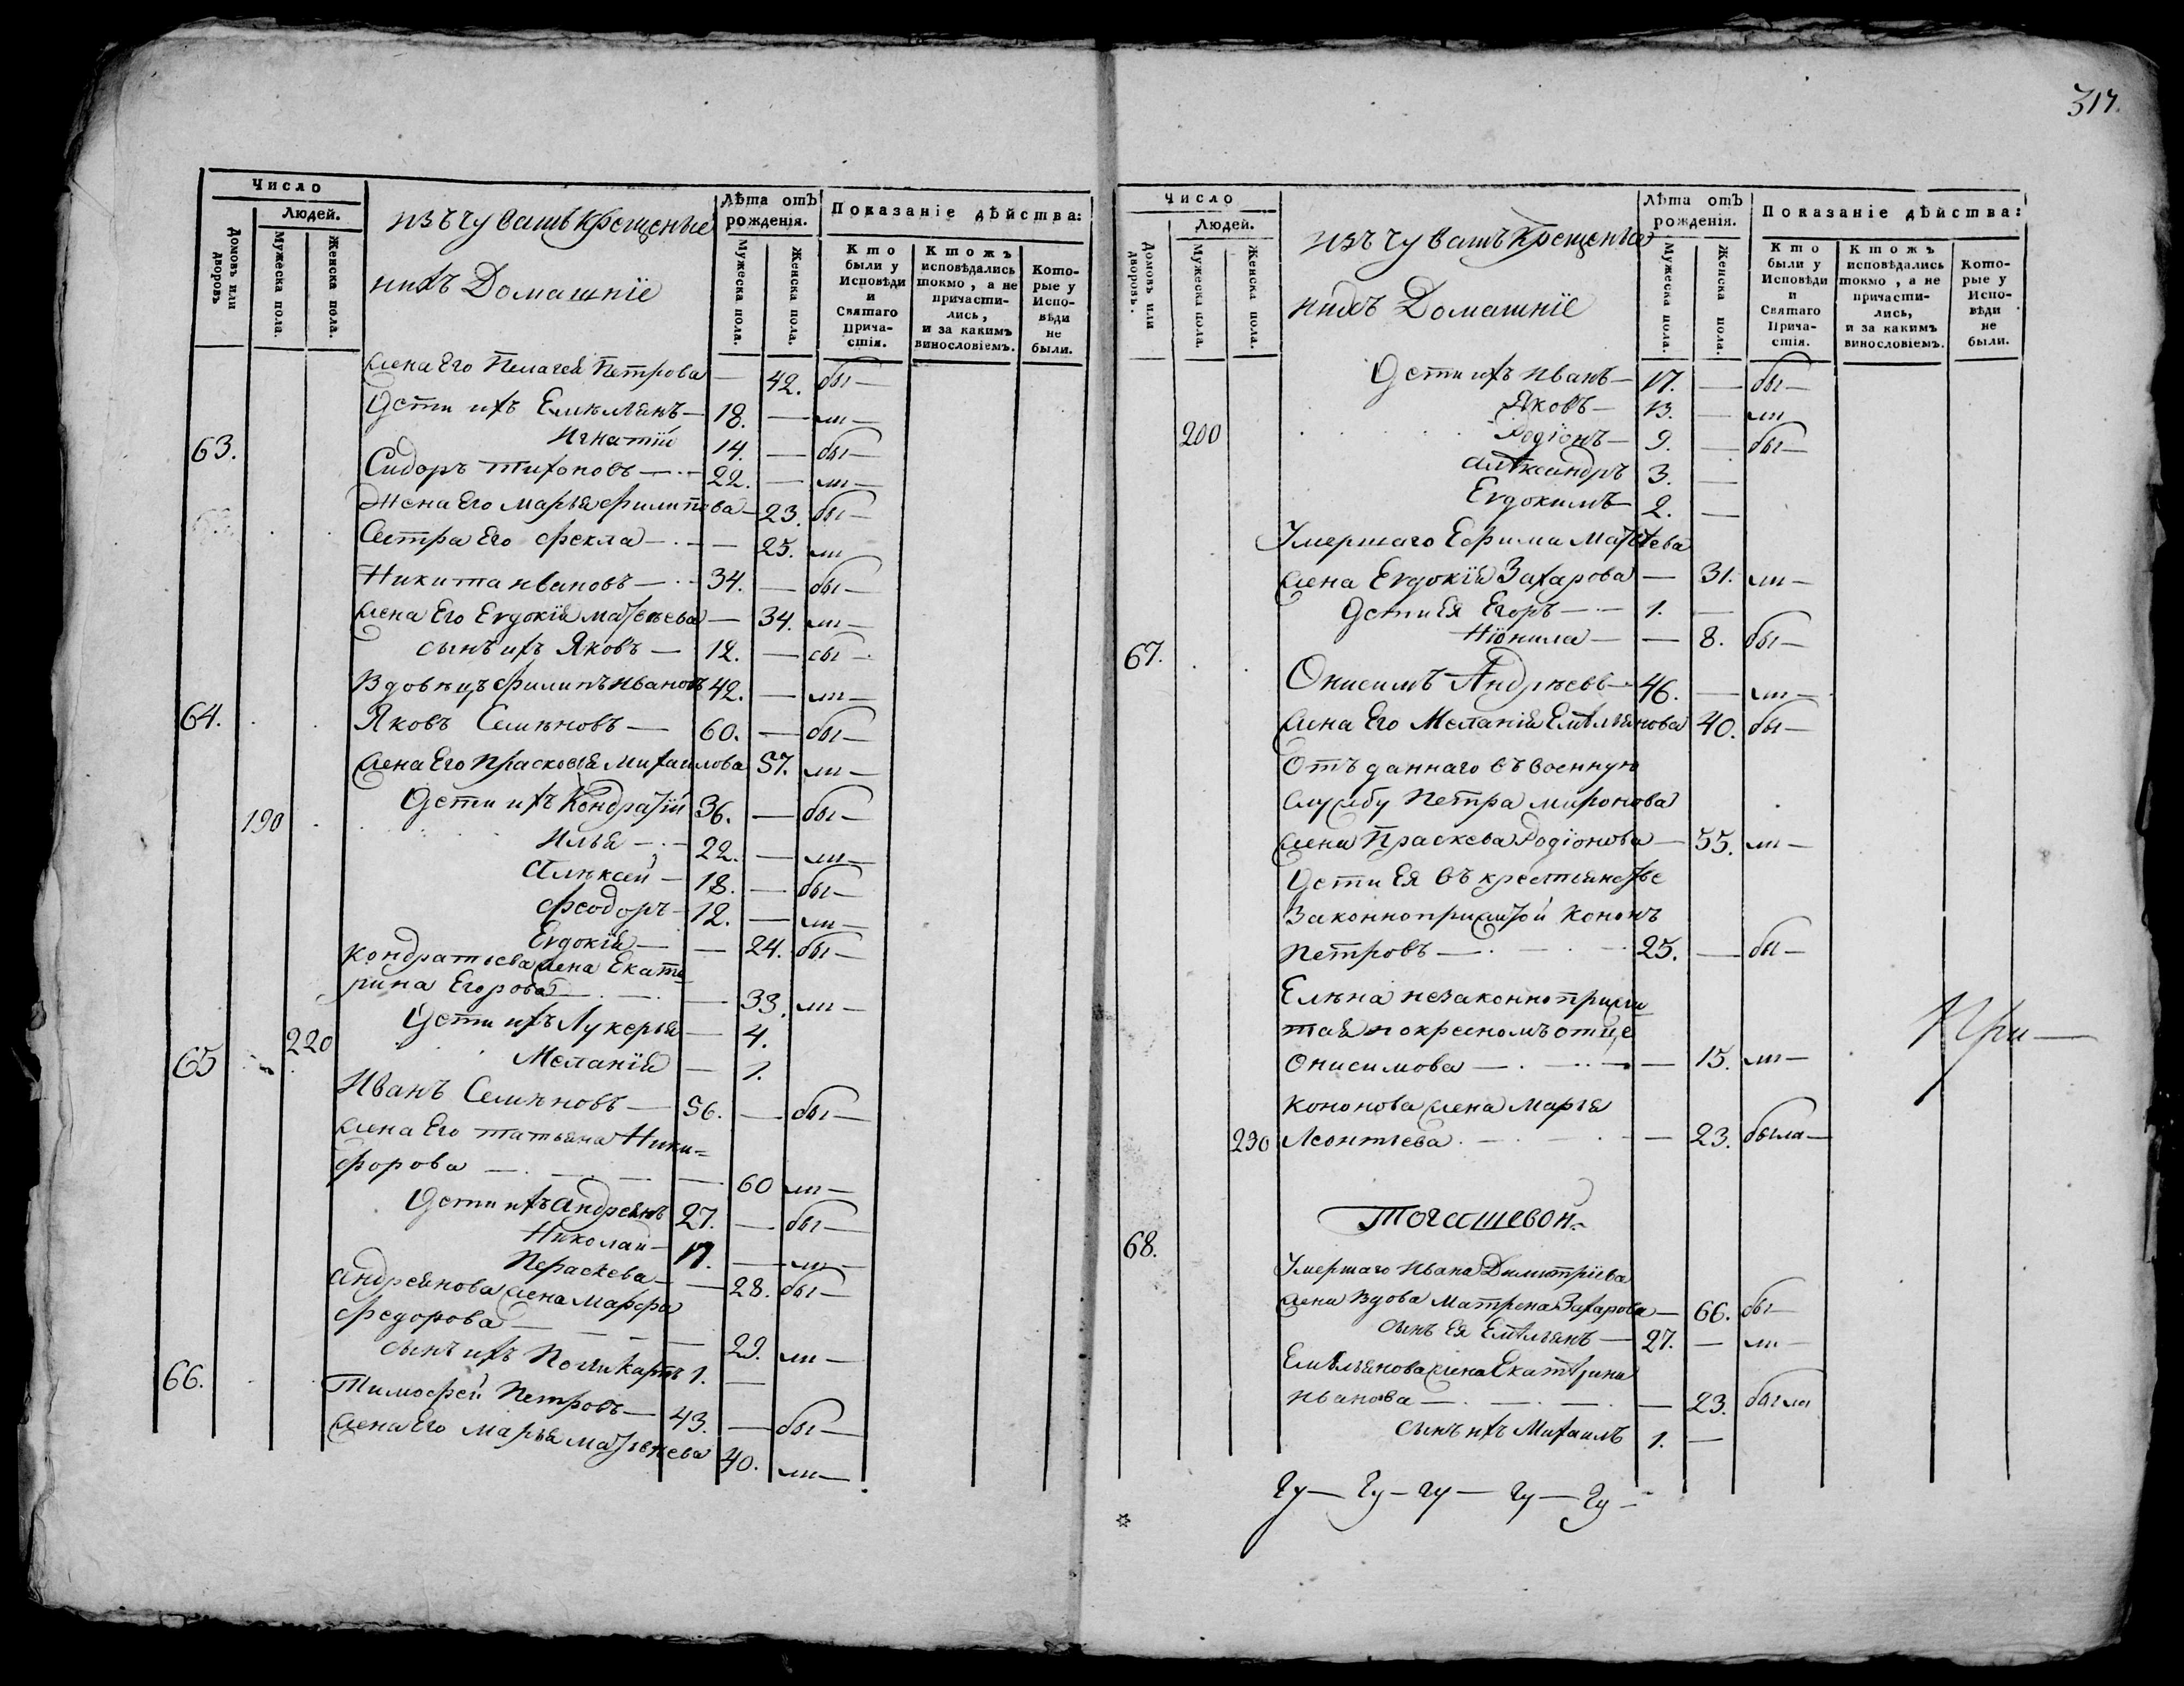 317.
Число
Людей.
Домовъ или дворовъ
Мужеска пола.
Женска пола.
изъ чувашъ Крещеные
нихъ Домашніе
Лѣта отъ рожденія.
Мужеска пола.
Женска пола.
Показаніе дѣйства:
Кто были у Исповѣди и Святаго Прича-стія.
Ктожъ исповѣдались токмо, а не причасти-лись, и за какимъ винословіемъ.
Кото-рые у Испо-вѣди не были.
жена Его Пелагея Петрова — 42. бы—
Дети ихъ Емѣльянъ — 18. — ли—
Игнатій 14. — бы—
63. Сидоръ Тихоновъ — 22. — ли—
Жена Его Марья Филипова — 23. бы—
Сестра Его Фекла — — 25. ли
Никита Ивановъ — 34. — бы—
жена Его Евдокія Матвѣева — 34. ли—
сынъ ихъ Яковъ — 12. — бы—
Вдовецъ Филипъ Ивановъ 42. — ли—
64. Яковъ Семѣновъ — 60. — бы—
жена Его Прасковья Михаилова 57. ли—
190 Дети ихъ Кондратій 36. — бы—
Илья — 22. — ли—
Алѣксей — 18. — бы—
Феодоръ — 12. — ли—
Евдокія — — 24. бы—
Кондратьева жена Екате
рина Егорова — — 33. ли—
220 Дети ихъ Лукерья — 4.
Меланія — 1.
65 Иванъ Семѣновъ — 56. — бы—
жена Его Татьяна Ники=
форова — — 60 ли—
Дети ихъ Андреянъ 27. — бы—
Николай — 17. — ли—
Пераскева — — 28. бы—
Андреянова жена Марфа
Федорова — — 29. ли—
сынъ ихъ Поликарпъ 1. —
66. Тимофей Петровъ — 43. — бы—
жена Его Марья Матвѣева 40. ли—
Число
Людей.
Домовъ или дворовъ.
Мужеска пола.
Женска пола.
изъ чувашъ Крещеные
нихъ Домашніе
Лѣта отъ рожденія.
Мужеска пола.
Женска пола.
Показаніе дѣйства:
Кто были у Исповѣди и Святаго Прича-стія.
Ктожъ исповѣдались токмо, а не причасти-лись, и за какимъ винословіемъ.
Кото-рые у Испо-вѣди не были.
Дети ихъ Иванъ — 17. — бы—
Яковъ — 13. — ли
200 Родіонъ — 9. — бы—
Александръ 3. —
Евдокимъ — 2. —
Умершаго Ефима Матвева
жена Евдокія Захарова — 31. ли—
Дети Ея Егоръ — 1. —
Ніонила — — 8. бы—
67. Онисимъ Андрѣевъ — 46. — ли—
жена Его Меланія Емельянова 40. бы—
Отъ даннаго въ военную
службу Петра миронова
жена Праскева Родіонова — 55. ли—
Дети Ея въ крестьянстве
Законноприжитой Кононъ
Петровъ — 25. — бы—
Елѣна незаконноприжи
тая по крестномъ отце
Онисимова — — 15. ли—
Кононова жена Марья
230 Леонтьева — — 23. была—
При—
Тогашевой
68. Умершаго Ивана Димитріева
жена Вдова Матрена Захарова — 66. бы—
сынъ Ея Емельянъ — 27. — ли—
Емѣльянова жена Екатерина
Иванова — — 23. была
сынъ ихъ Михаилъ 1. —
Чу— Чу— чу— чу— Чу—